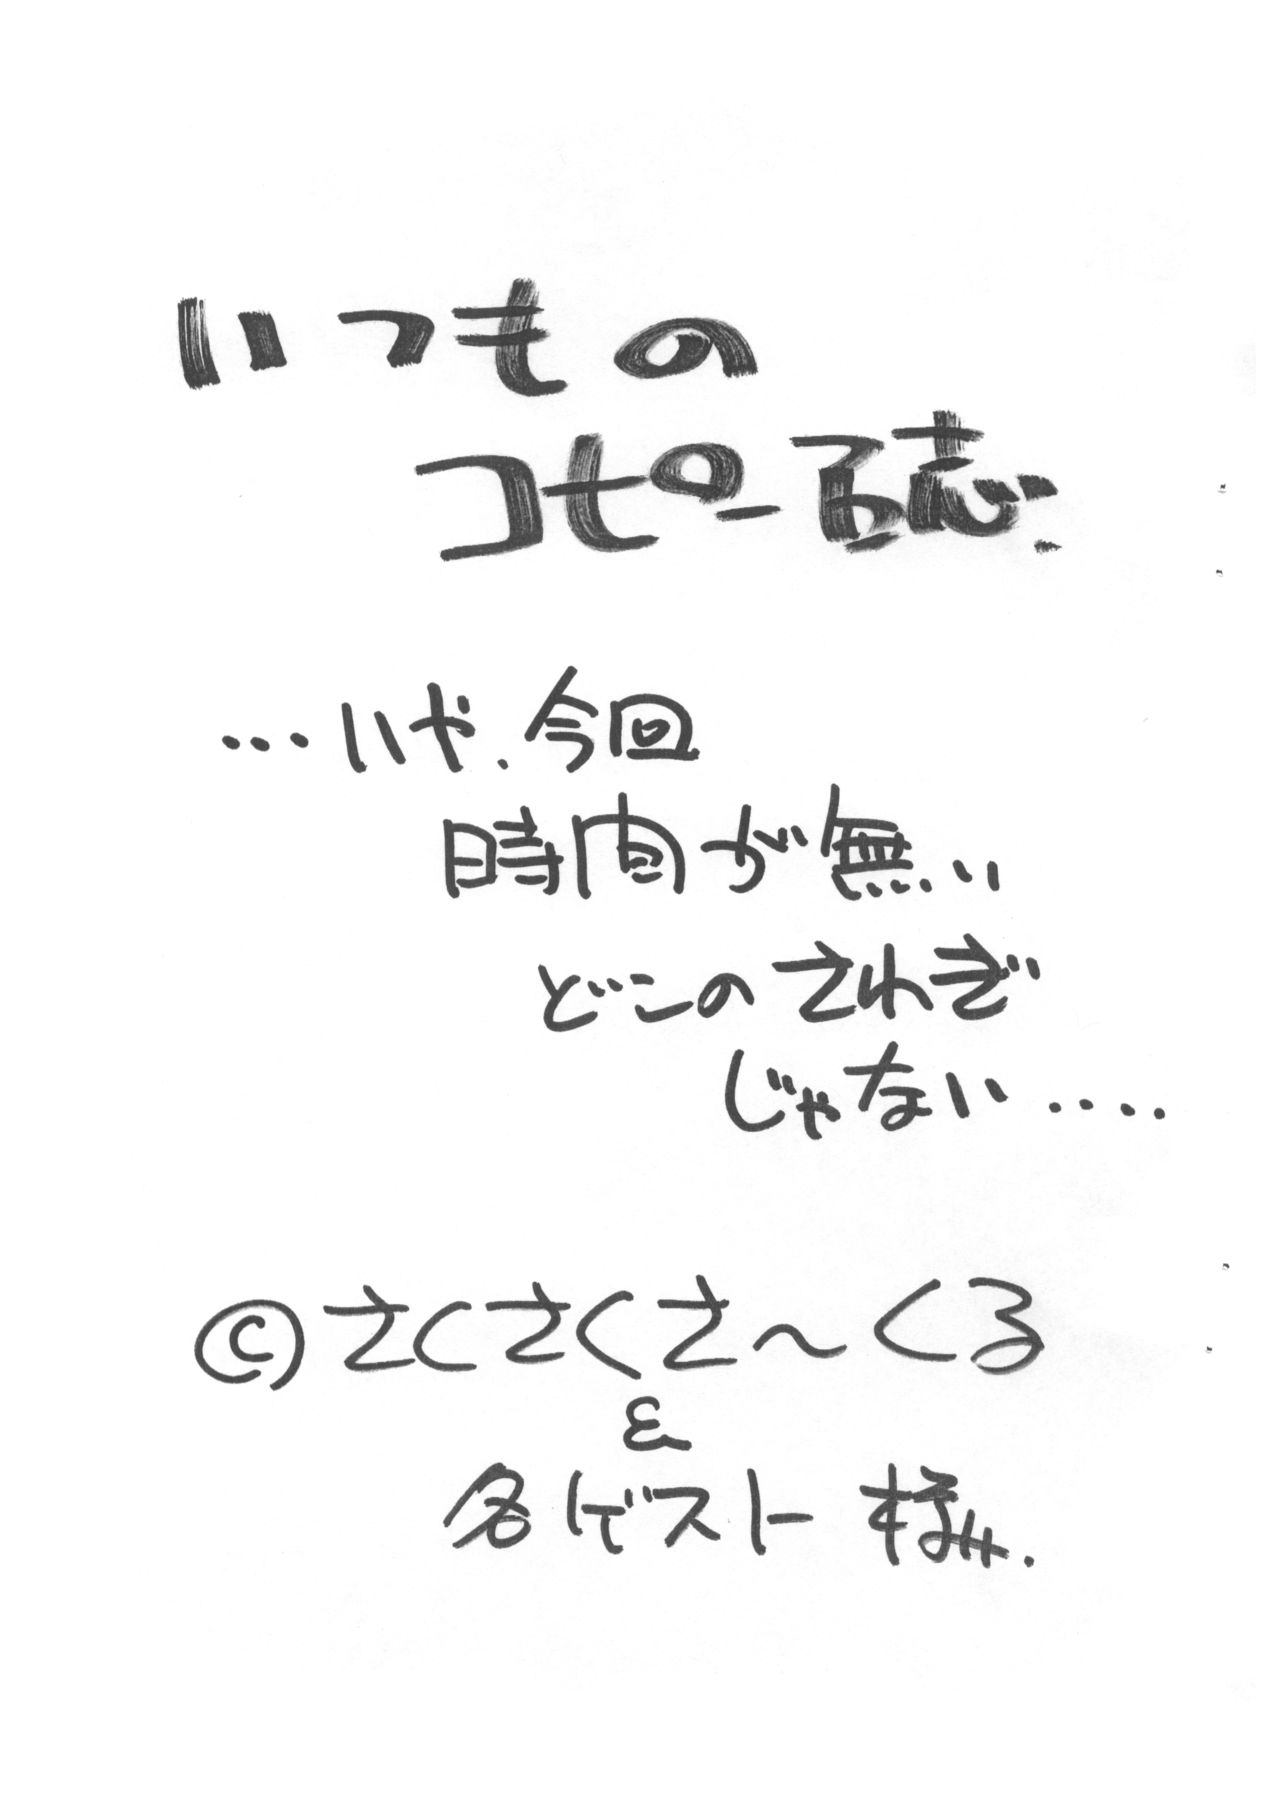 いつもの
コピー誌.
…いや.今回
時間が無い
どこのさわぎ
じゃない‥‥
©さくさくさ~くる
&
各ゲスト様.